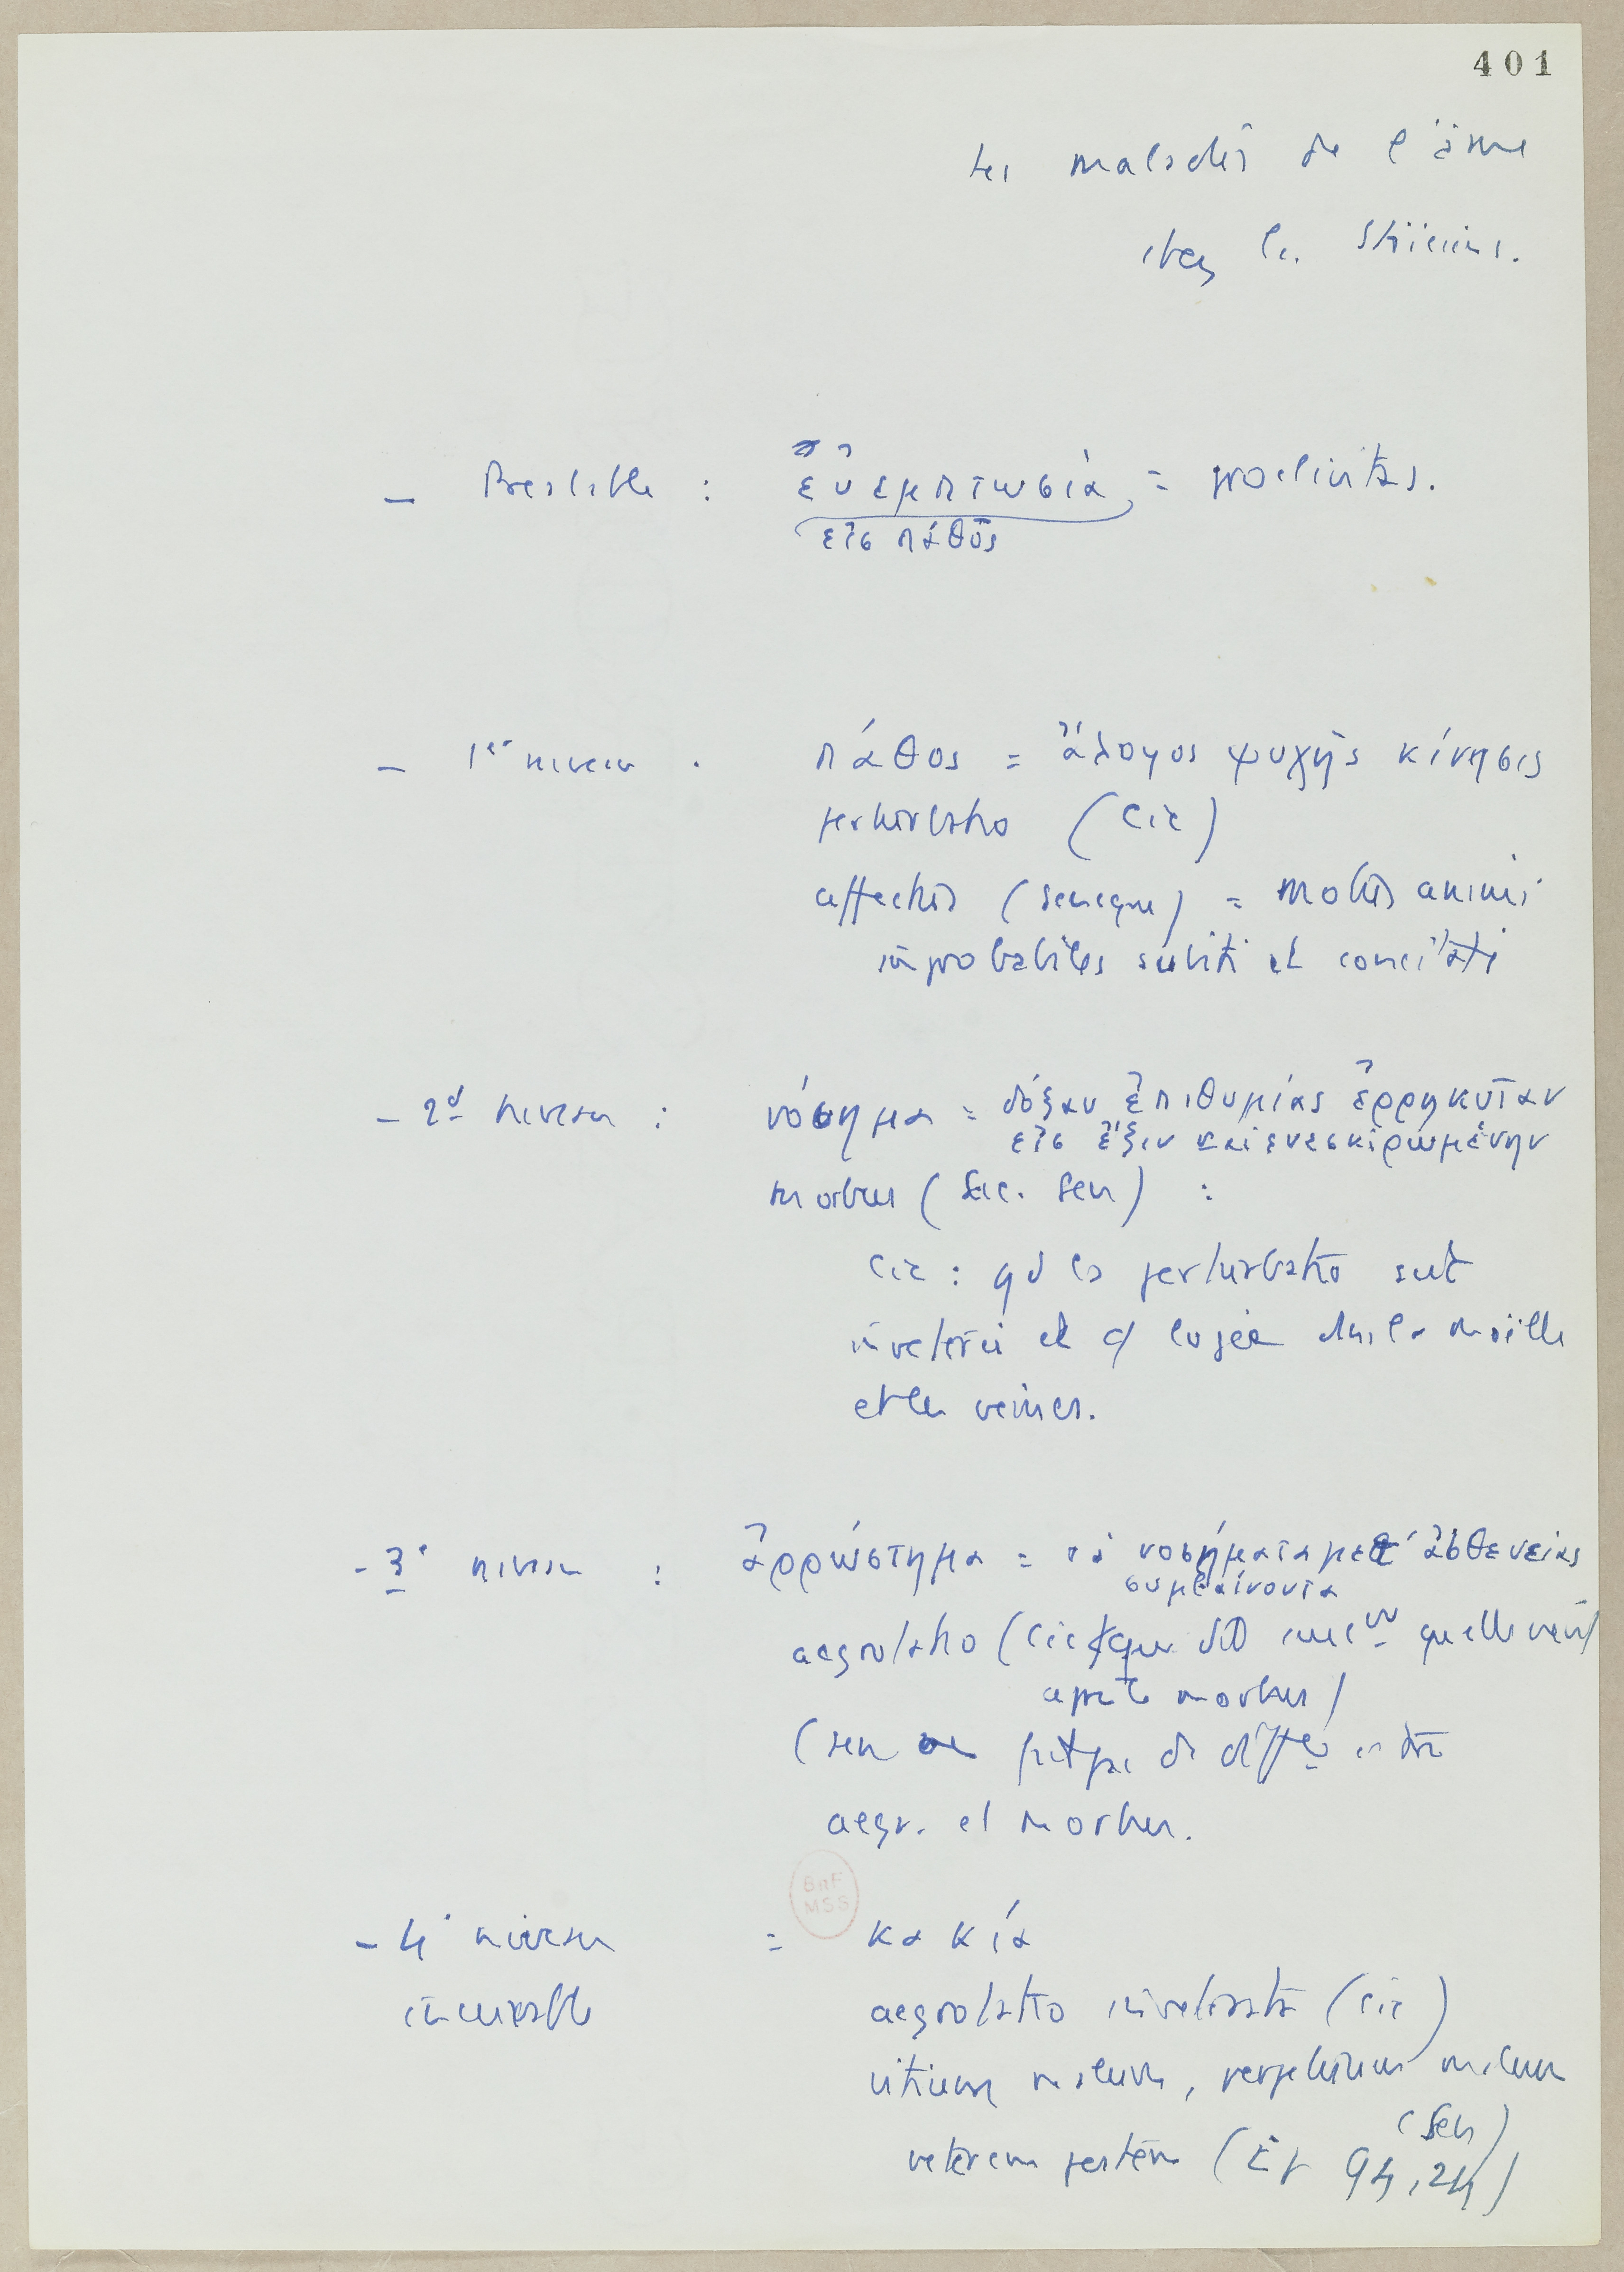 401
Les maladies de l'âme
chez les Stoïciens.
— Préalable : εὐεμπτωσία = proclivitas.
εἰς πάθος
— 1er niveau . πάθος = ἄλογος ψυχῆς κίνησις
perturbatio (Cic)
affectus (Seneque) = motus animi
improbabiles subiti et concitati
— 2d niveau : νόσημα = δόξαν ἐπιθυμίας ἐρρηκυῖαν
εἰς ἕξιν καὶ ἐνεσκιρωμένην
morbus (Cic. Sen) :
Cic : qd la perturbatio est
inveterée et logée dans la moëlle
et les veines.
- 3e niveau : ἀρρώστημα = τὰ νοσήματα μετ' ἀσθενείας
συμβαίνοντα
aegrotatio (Cic que dit qu'elle vient
après le morbus)
(Sen fait pas de diffce entre
aegr. et morbus.
— 4e niveau = κακία
incurable aegrotatio inveterata (Cic)
vitium malum, perpetuum malum
(Sen)
veterem pestem (Ep 94,24)
BnF
MSS